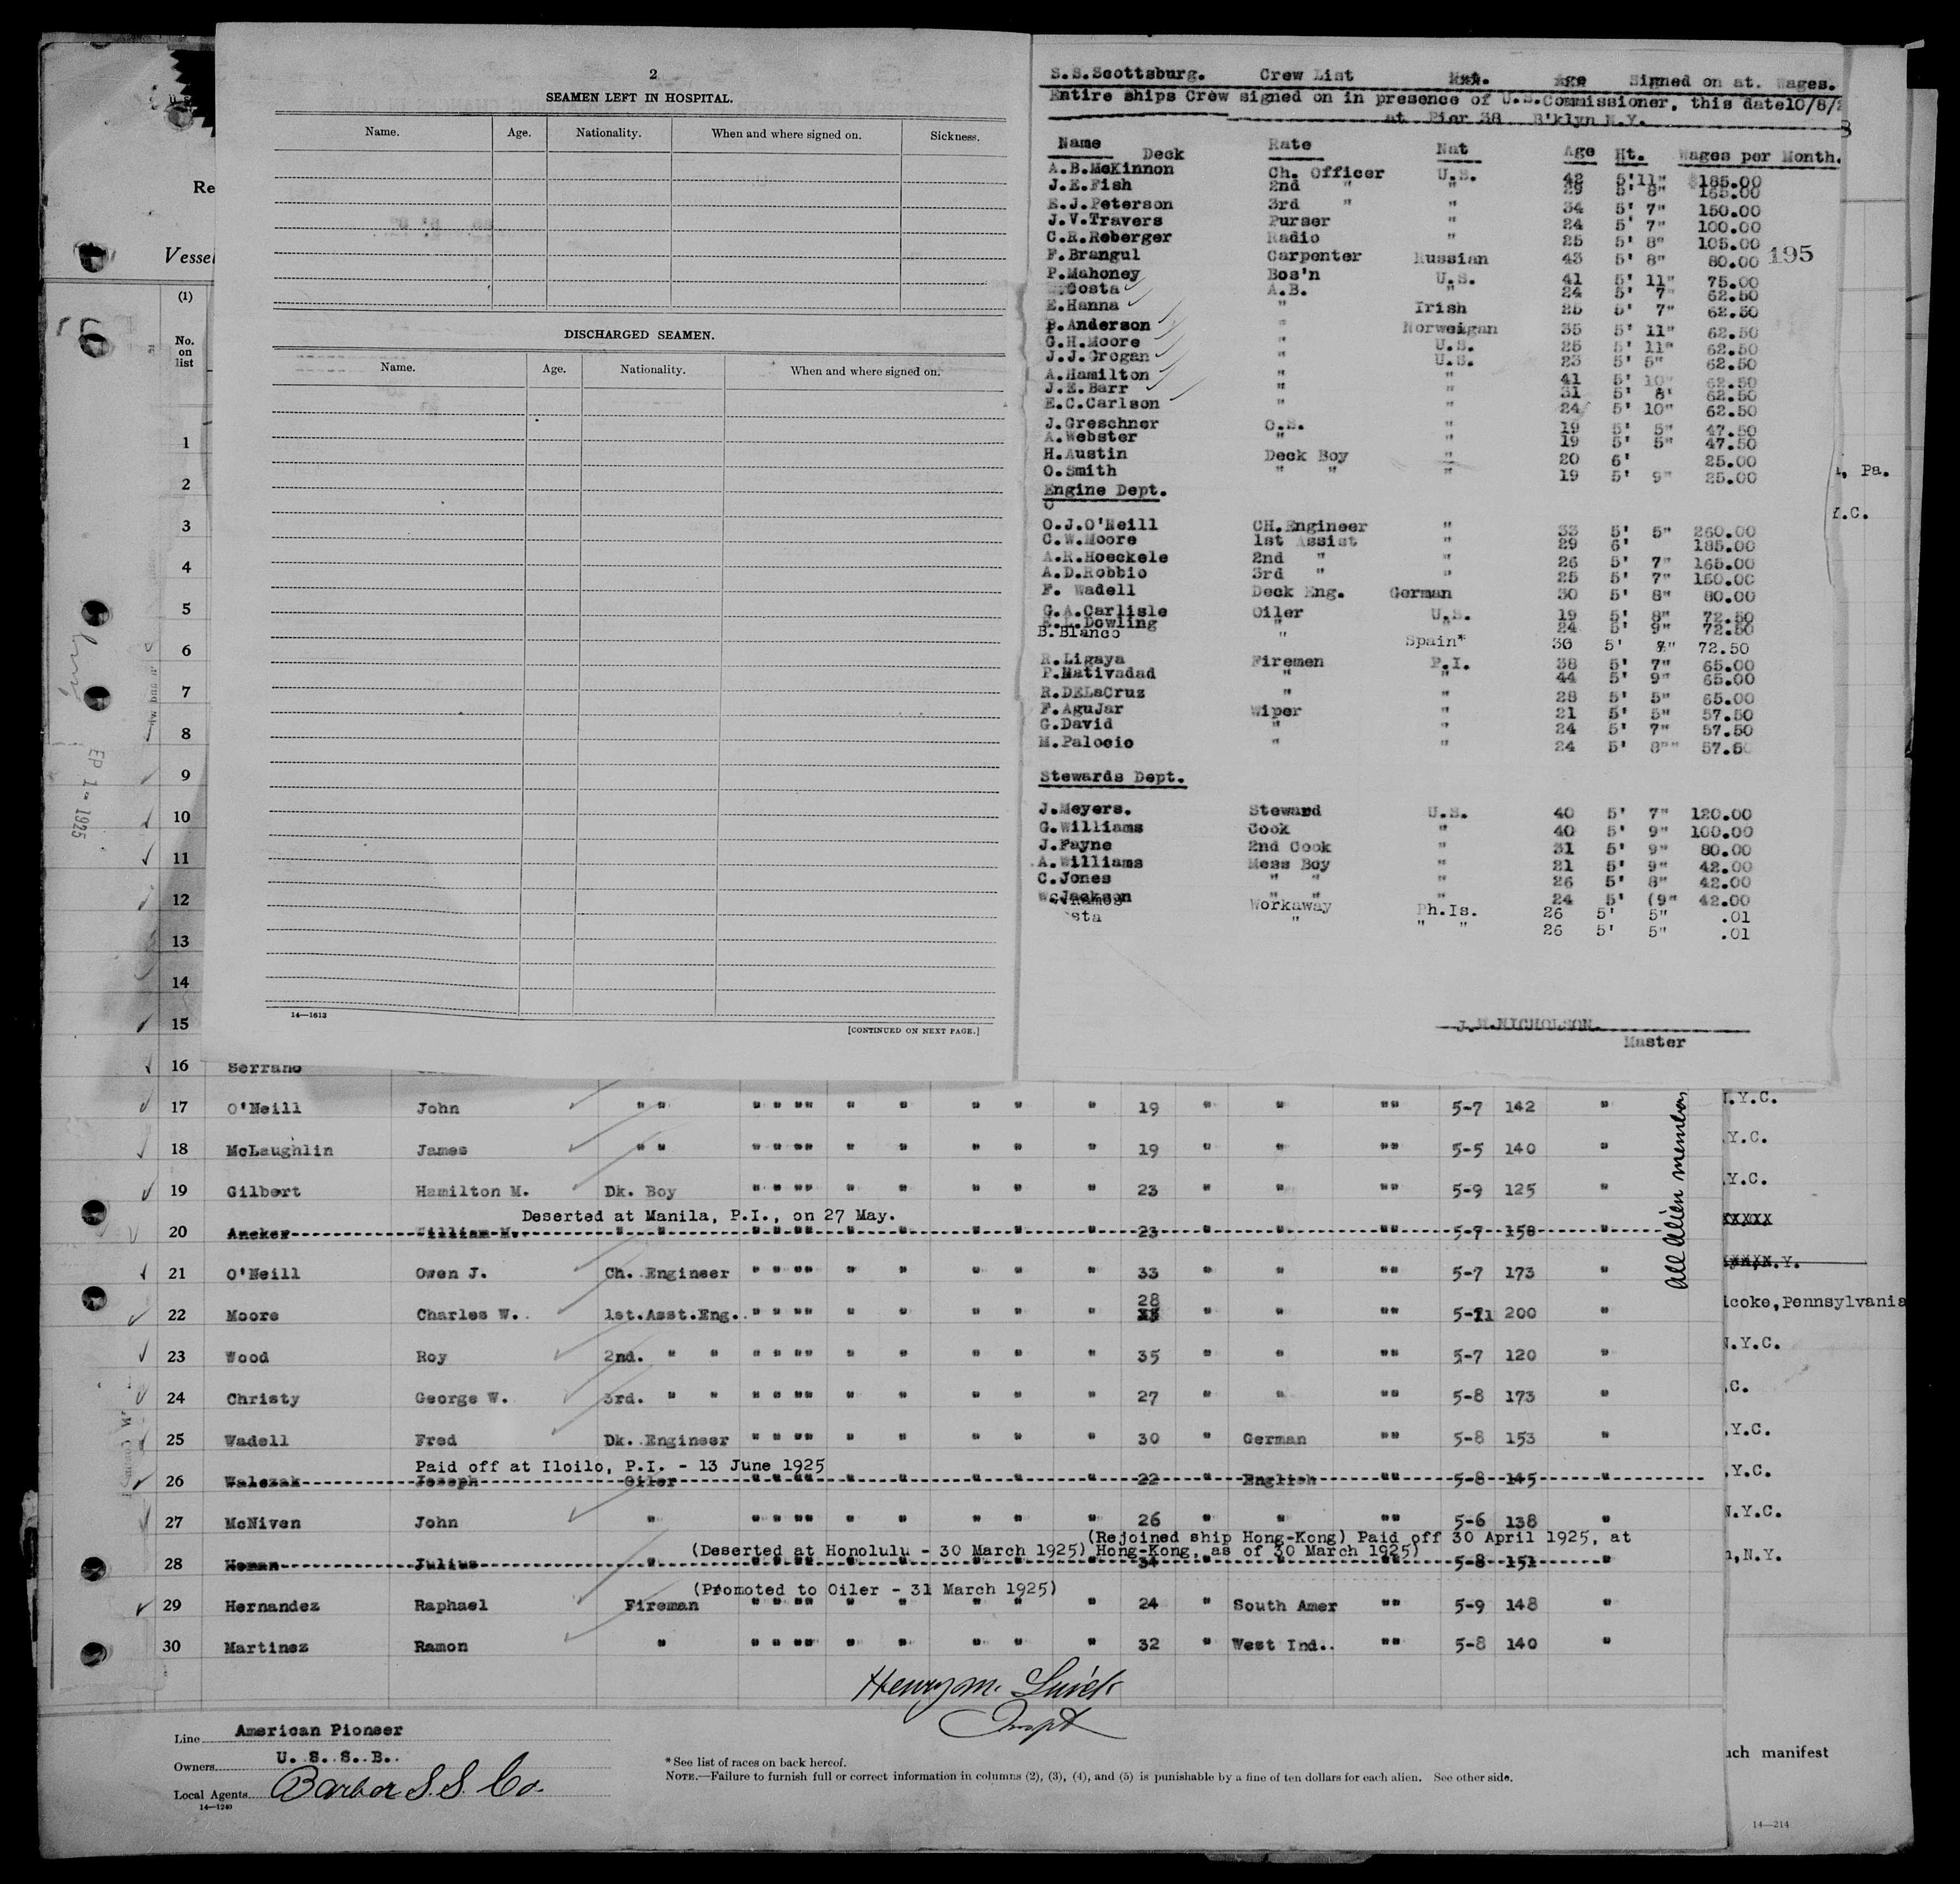 2
SEAMEN LEFT IN HOSPITAL.
Name. Age. Nationality. When and where signed on. Sickness.
DISCHARGED SEAMEN.
Name. Age. Nationality. When and where signed on.
14—1613
[CONTINUED ON NEXT PAGE.]
S.S.Scottsburg. Crew List Nat. Age Signed on at. Wages.
Entire ships Crew signed on in presence of U.S.Commissioner, this date10/8/
at Pier 38 B'klyn N.Y.
Name Deck Rate Nat Age Ht. Wages per Month.
A.B.McKinnon Ch. Officer U.S. 42 5'11" $185.00
J.E.Fish 2nd " " 29 5' 8" 165.00
E.J.Peterson 3rd " " 34 5' 7" 150.00
J.V.Travers Purser " 24 5' 7" 100.00
C.R.Reberger Radio " 25 5' 8" 105.00
195
F.Brangul Carpenter Russian 43 5' 8" 80.00
P.Mahoney Bos'n U.S. 41 5' 11" 75.00
Costa A.B. " 24 5' 7" 62.50
E.Hanna " Irish 25 5' 7" 62.50
P.Anderson " Norweigan 35 5' 11" 62.50
G.H.Moore " U.S. 25 5' 11" 62.50
J.J.Grogan " U.S. 23 5' 5" 62.50
A.Hamilton " " 41 5' 10" 62.50
J.E.Barr " " 31 5' 8' 62.50
E.C.Carlson " " 24 5' 10" 62.50
J.Greschner O.S. " 19 5' 5" 47.50
A.Webster " " 19 5' 5" 47.50
H.Austin Deck Boy " 20 6' 25.00
O.Smith " " " 19 5' 9" 25.00
Engine Dept.
O
O.J.O'Neill CH.Engineer " 33 5' 5" 260.00
C.W.Moore 1st Assist " 29 6' 185.00
A.R.Hoeckele 2nd " " 26 5' 7" 165.00
A.D.Robbio 3rd " " 25 5' 7" 150.00
F. Wadell Deck Eng. German 30 5' 8" 80.00
G.A.Carlisle Oiler U.S. 19 5' 8" 72.50
E.L.Dowling " " 24 5' 9" 72.50
B.Blanco " Spain* 30 5' 72.50
R.Ligaya Firemen P.I. 38 5' 7" 65.00
P.Nativadad " " 44 5' 9" 65.00
R.DELaCruz " " 28 5' 5" 65.00
F.AguJar Wiper " 21 5' 5" 57.50
G.David " " 24 5' 7" 57.50
M.Palocio " " 24 5' 8"" 57.50
Stewards Dept.
J.Meyers. Steward U.S. 40 5' 7" 120.00
G.Williams Cook " 40 5' 9" 100.00
J.Payne 2nd Cook " 31 5' 9" 80.00
A.Williams Mess Boy " 21 5' 9" 42.00
C.Jones " " " 26 5' 8" 42.00
W.Jackson " " " 24 5' (9" 42.00
Workaway Ph.Is. 26 5' 5" .01
sta " " " 26 5' 5" .01
J.W.NICHOLSON.
Master
Re
Vessel
(1)
No. on list
1
2
3
4
5
6
7
8
9
10
11
12
13
14
15
EP 1 - 1925
, Pa.
Y.C.
16 Serrano
17 O'Neill John " " " " "" " " " " " 19 " " "" 5-7 142 " .Y.C.
18 McLaughlin James " " " " "" " " " " " 19 " " "" 5-5 140 " .Y.C.
19 Gilbert Hamilton M. Dk. Boy " " "" " " " " " 23 " " "" 5-9 125 " .Y.C.
Deserted at Manila, P.I., on 27 May.
20 Aneker William M. " " " " "" " " " " " 23 " " "" 5-7 158 " XXXXX
21 O'Neill Owen J. Ch. Engineer " " "" " " " " " 33 " " "" 5-7 173 " N.Y.
28
22 Moore Charles W. 1st.Asst.Eng. " " "" " " " " " " " "" 5-11 200 " icoke,Pennsylvania
23 Wood Roy 2nd. " " " " "" " " " " " 35 " " "" 5-7 120 " N.Y.C.
24 Christy George W. 3rd. " " " " "" " " " " " 27 " " "" 5-8 173 " .C.
25 Wadell Fred Dk. Engineer " " "" " " " " " 30 " German "" 5-8 153 " .Y.C.
Paid off at Iloilo, P.I. - 13 June 1925
26 Walczak Joseph Oiler " " "" " " " " " 22 " English "" 5-8 145 " .Y.C.
27 McNiven John " " " "" " " " " " 26 " " "" 5-6 138 " N.Y.C.
(Rejoined ship Hong-Kong) Paid off 30 April 1925, at
(Deserted at Honolulu - 30 March 1925) Hong-Kong, as of 30 March 1925)
28 Homan Julius " " " "" " " " " " 34 " " "" 5-8 151 " ,N.Y.
(Promoted to Oiler - 31 March 1925)
29 Hernandez Raphael Fireman " " "" " " " " " 24 " South Amer "" 5-9 148 "
30 Martinez Ramon " " " "" " " " " " 32 " West Ind.. "" 5-8 140 "
All Alien members
Henry M.
Inspt
Line American Pioneer
Owners U. S. S. B.
Local Agents Barber S.S. Co.
14—1240
* See list of races on back hereof.
NOTE.—Failure to furnish full or correct information in columns (2), (3), (4), and (5) is punishable by a fine of ten dollars for each alien. See other side.
uch manifest
14—214